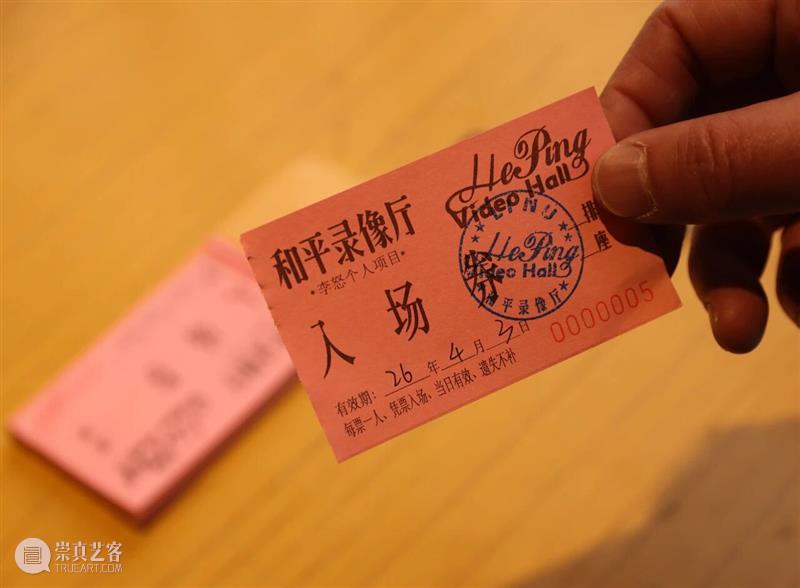 和平录像厅
HePing
Video Hall
·李怒个人项目·
入场券
排
座
LI NU
HePing
Video Hall
和平录像厅
有效期：26年4月3日
0000005
每票一人、凭票入场、当日有效、遗失不补
崇真艺客
WWW.TRUEART.COM